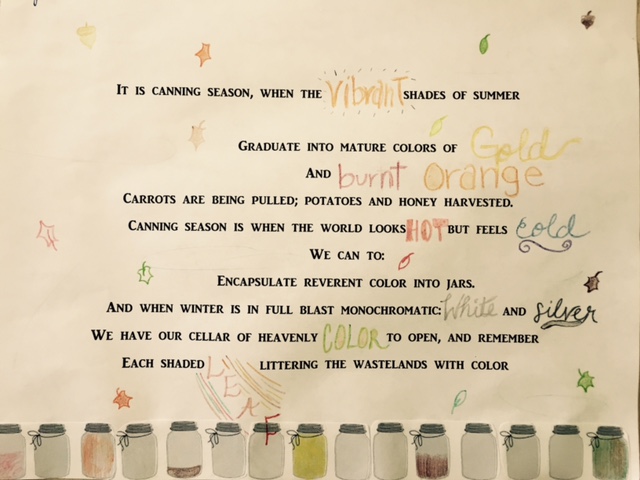 IT IS CANNING SEASON, WHEN THE Vibrant SHADES OF SUMMER
GRADUATE INTO MATURE COLORS OF Gold
AND burnt Orange
CARROTS ARE BEING PULLED; POTATOES AND HONEY HARVESTED.
CANNING SEASON IS WHEN THE WORLD LOOKS HOT BUT FEELS Cold
WE CAN TO:
ENCAPSULATE REVERENT COLOR INTO JARS.
AND WHEN WINTER IS IN FULL BLAST MONOCHROMATIC: White AND Silver
WE HAVE OUR CELLAR OF HEAVENLY COLOR TO OPEN, AND REMEMBER
EACH SHADED LEAF LITTERING THE WASTELANDS WITH COLOR